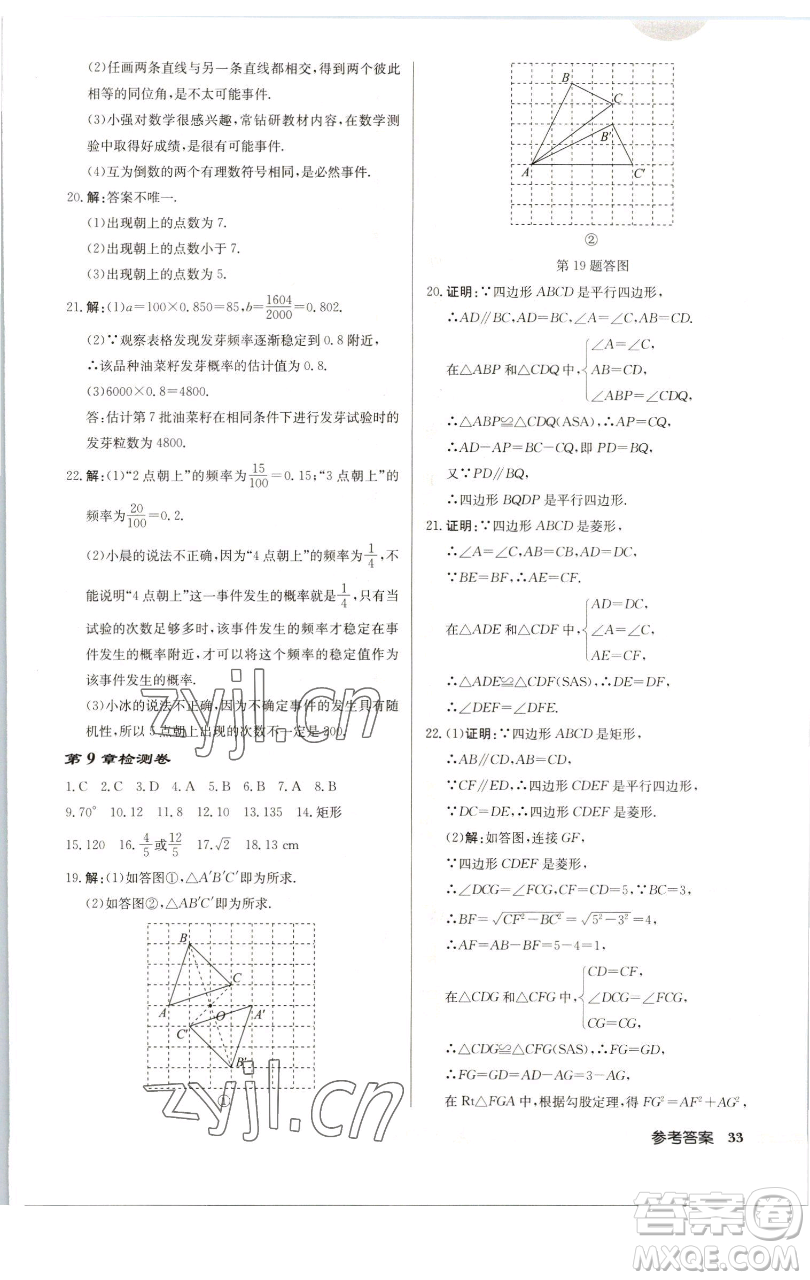 (2)任画两条直线与另一条直线都相交,得到两个彼此
相等的同位角,是不太可能事件.
(3)小强对数学很感兴趣,常钻研教材内容,在数学测
验中取得好成绩,是很有可能事件.
(4)互为倒数的两个有理数符号相同,是必然事件.
20.解:答案不唯一.
(1)出现朝上的点数为7.
(2)出现朝上的点数小于7.
(3)出现朝上的点数为5.
21.解:(1)a=100×0.850=85,b=1604/2000=0.802.
(2)∵观察表格发现发芽频率逐渐稳定到0.8附近,
∴该品种油菜籽发芽概率的估计值为0.8.
(3)6000×0.8=4800.
答:估计第7批油菜籽在相同条件下进行发芽试验时的
发芽粒数为4800.
22.解:(1)“2点朝上”的频率为15/100=0.15;“3点朝上”的
频率为20/100=0.2.
(2)小晨的说法不正确,因为“4点朝上”的频率为1/4,不
能说明“4点朝上”这一事件发生的概率就是1/4,只有当
试验的次数足够多时,该事件发生的频率才稳定在事
件发生的概率附近,才可以将这个频率的稳定值作为
该事件发生的概率.
(3)小冰的说法不正确,因为不确定事件的发生具有随
机性,所以5点朝上出现的次数不一定是200.
第9章检测卷
1.C 2.C 3.D 4.A 5.B 6.B 7.A 8.B
9.70° 10.12 11.8 12.10 13.135 14.矩形
15.120 16.4/5或12/5 17.√2 18.13 cm
19.解:(1)如答图①,△A′B′C′即为所求.
(2)如答图②,△AB′C′即为所求.
B
C
A
O
A′
C′
B′
①
B
C
B′
A
C′
②
第19题答图
20.证明:∵四边形ABCD是平行四边形,
∴AD∥BC,AD=BC,∠A=∠C,AB=CD.
在△ABP和△CDQ中,{∠A=∠C,
AB=CD,
∠ABP=∠CDQ,
∴△ABP≌△CDQ(ASA),∴AP=CQ,
∴AD-AP=BC-CQ,即PD=BQ,
又∵PD∥BQ,
∴四边形BQDP是平行四边形.
21.证明:∵四边形ABCD是菱形,
∴∠A=∠C,AB=CB,AD=DC.
∵BE=BF,∴AE=CF.
在△ADE和△CDF中,{AD=DC,
∠A=∠C,
AE=CF,
∴△ADE≌△CDF(SAS),∴DE=DF,
∴∠DEF=∠DFE.
22.(1)证明:∵四边形ABCD是矩形,
∴AB∥CD,AB=CD.
∵CF∥ED,∴四边形CDEF是平行四边形,
∵DC=DE,∴四边形CDEF是菱形.
(2)解:如答图,连接GF,
∵四边形CDEF是菱形,
∴∠DCG=∠FCG,CF=CD=5,∵BC=3,
∴BF=√(CF²-BC²)=√(5²-3²)=4,
∴AF=AB-BF=5-4=1,
在△CDG和△CFG中,{CD=CF,
∠DCG=∠FCG,
CG=CG,
∴△CDG≌△CFG(SAS),∴FG=GD,
∴FG=GD=DA-AG=3-AG,
在Rt△FGA中,根据勾股定理,得FG²=AF²+AG²,
参考答案 33
zyjl.cn
zyjl.cn
答案圈
MXQE.COM